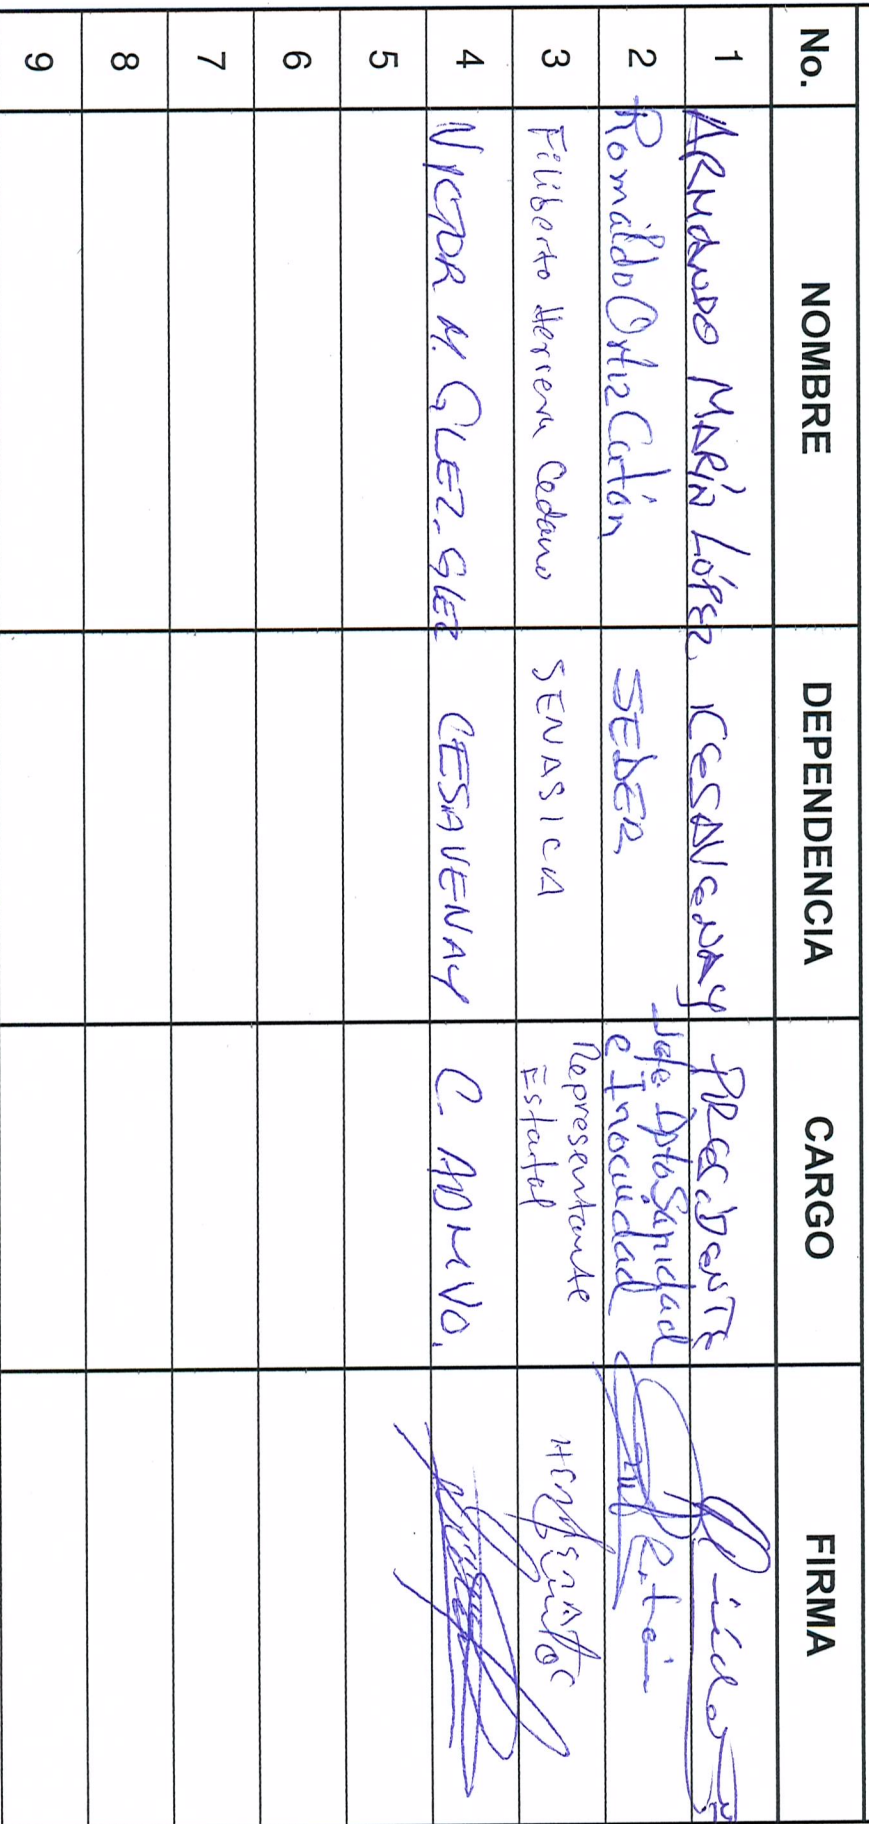 No. NOMBRE DEPENDENCIA CARGO FIRMA
1 ARMANDO MARÍN LÓPEZ. CESAVENAY PRESIDENTE
2 Romaldo Ortiz Catón SEDER Jefe Dpto Sanidad
e Inocuidad
3 Filiberto Herrera Cedano SENASICA Representante
Estatal
4 VICTOR M. GLEZ. GLEZ CESAVENAY C. ADMVO.
5
6
7
8
9